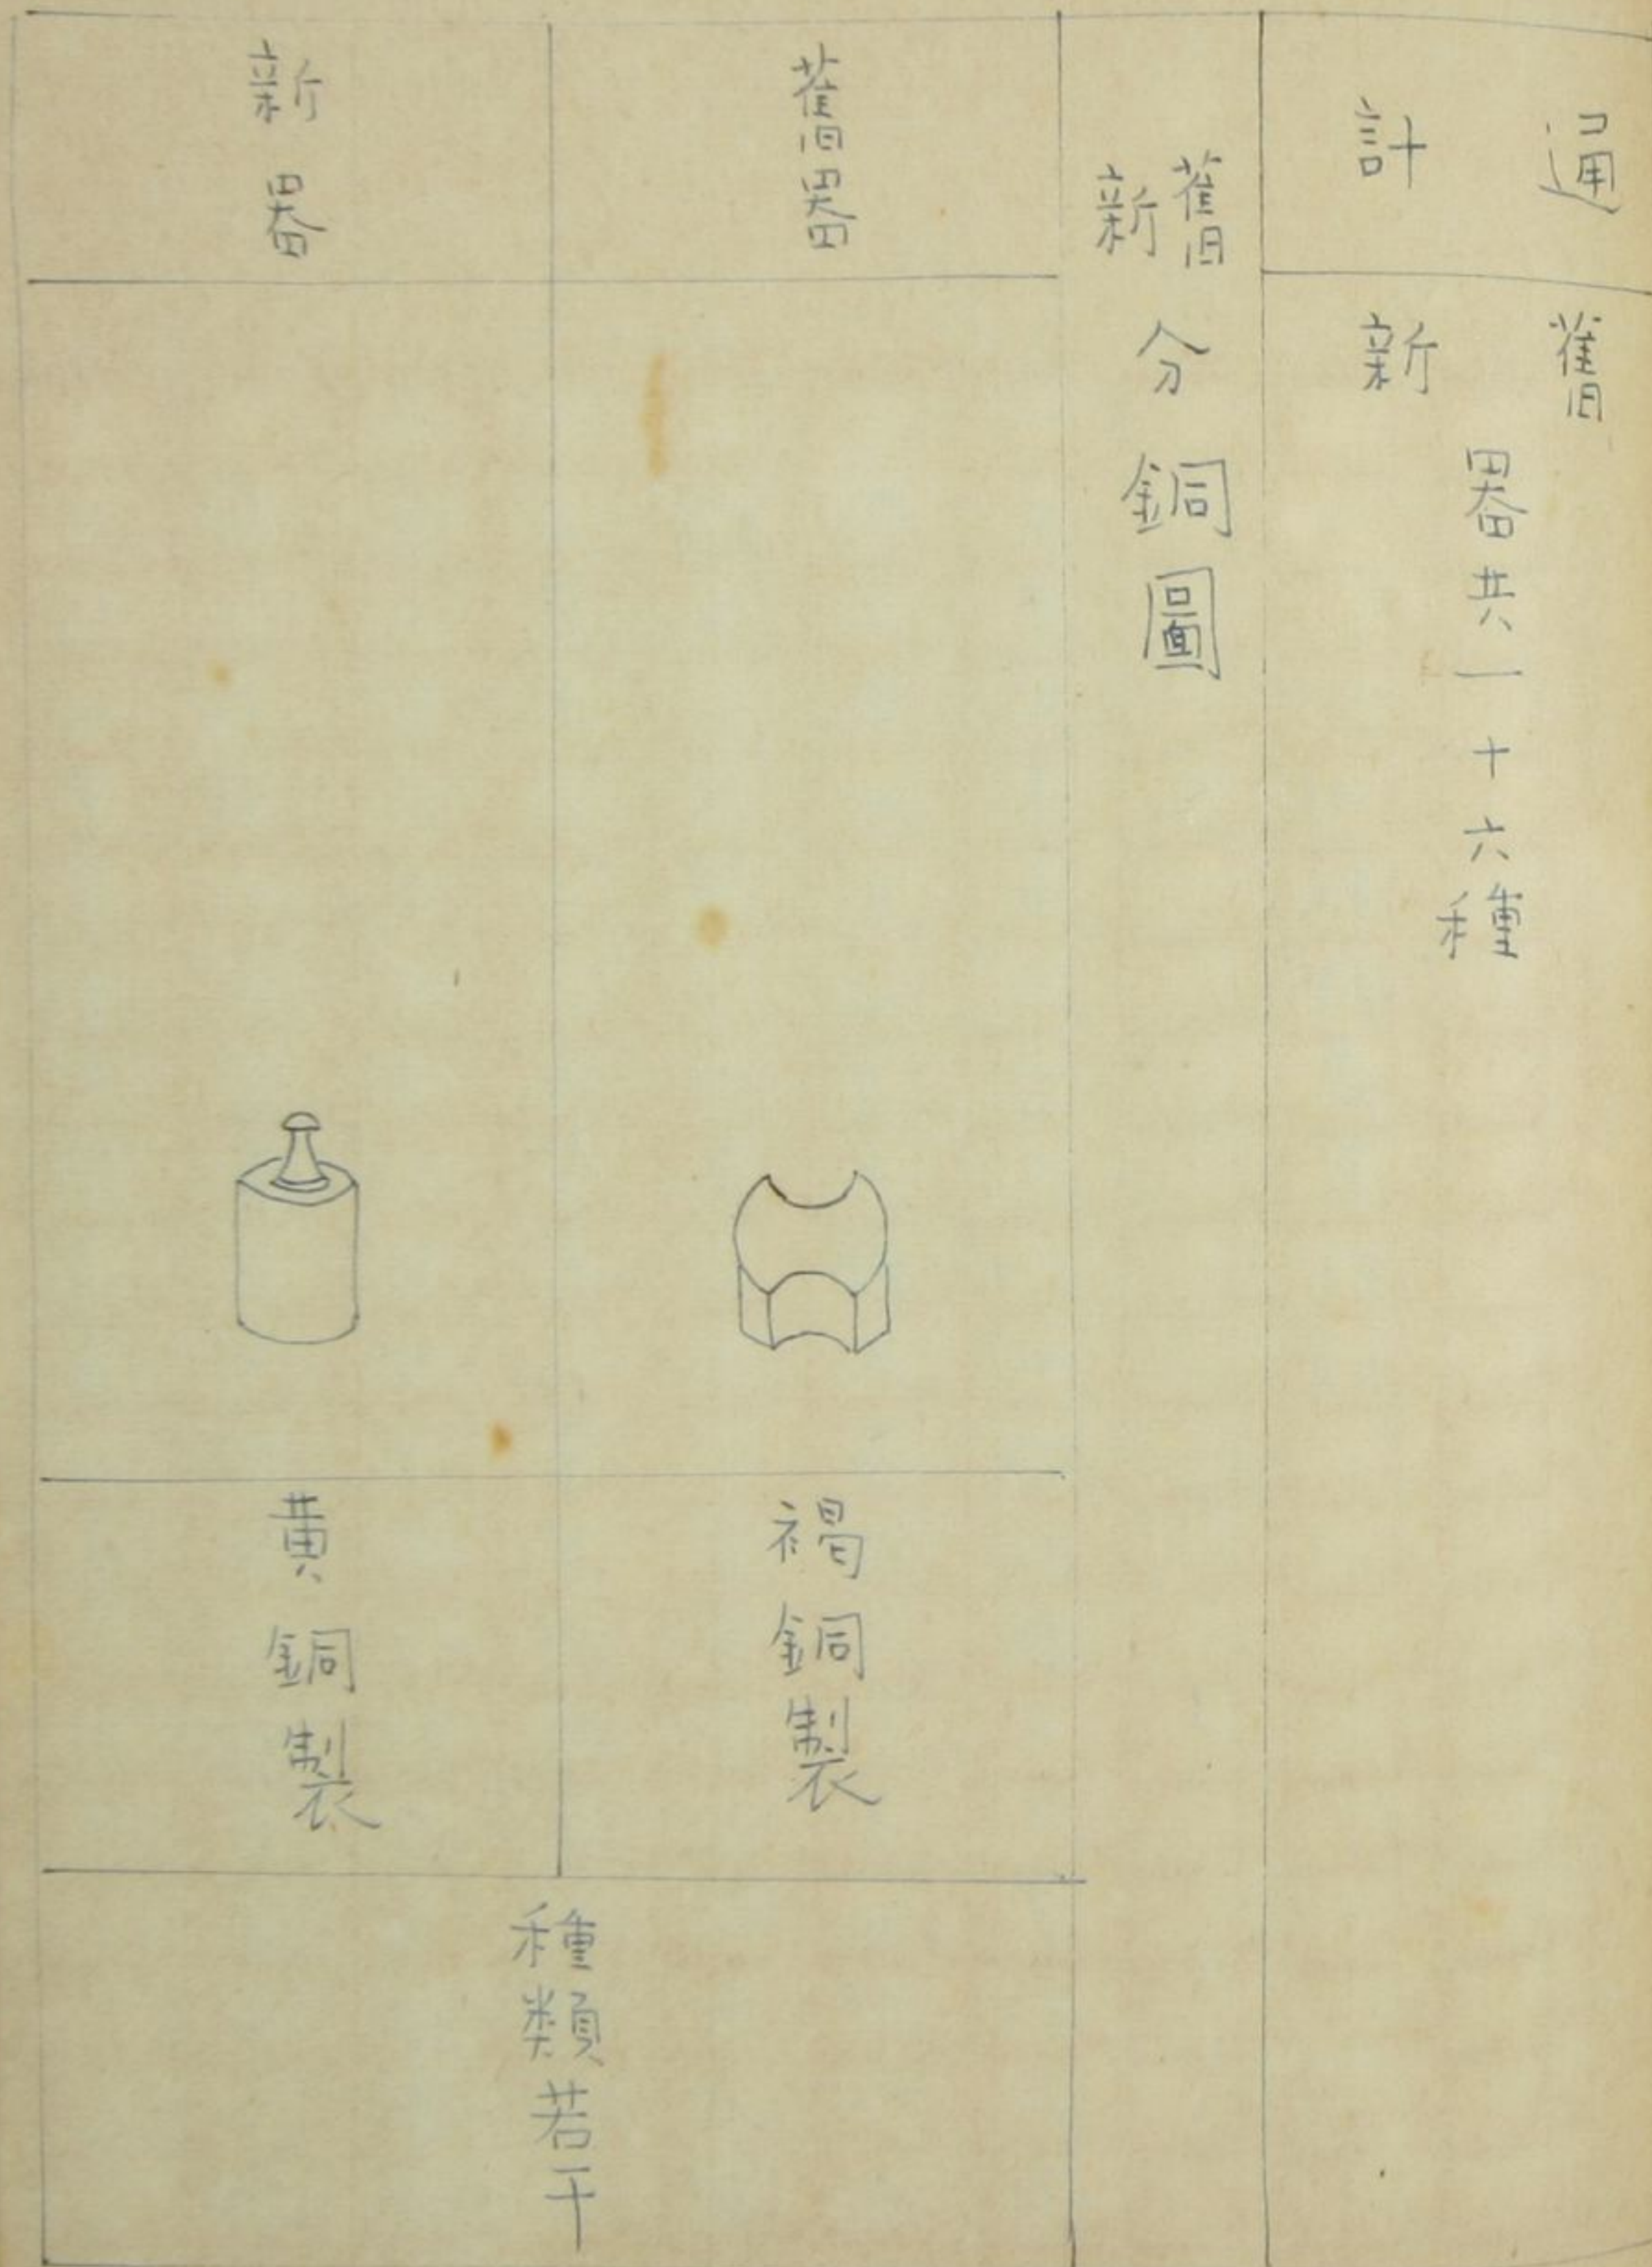 通計
舊新器共一十六種
舊新分銅圖
舊器
褐銅製
新器
黄銅製
種類若干